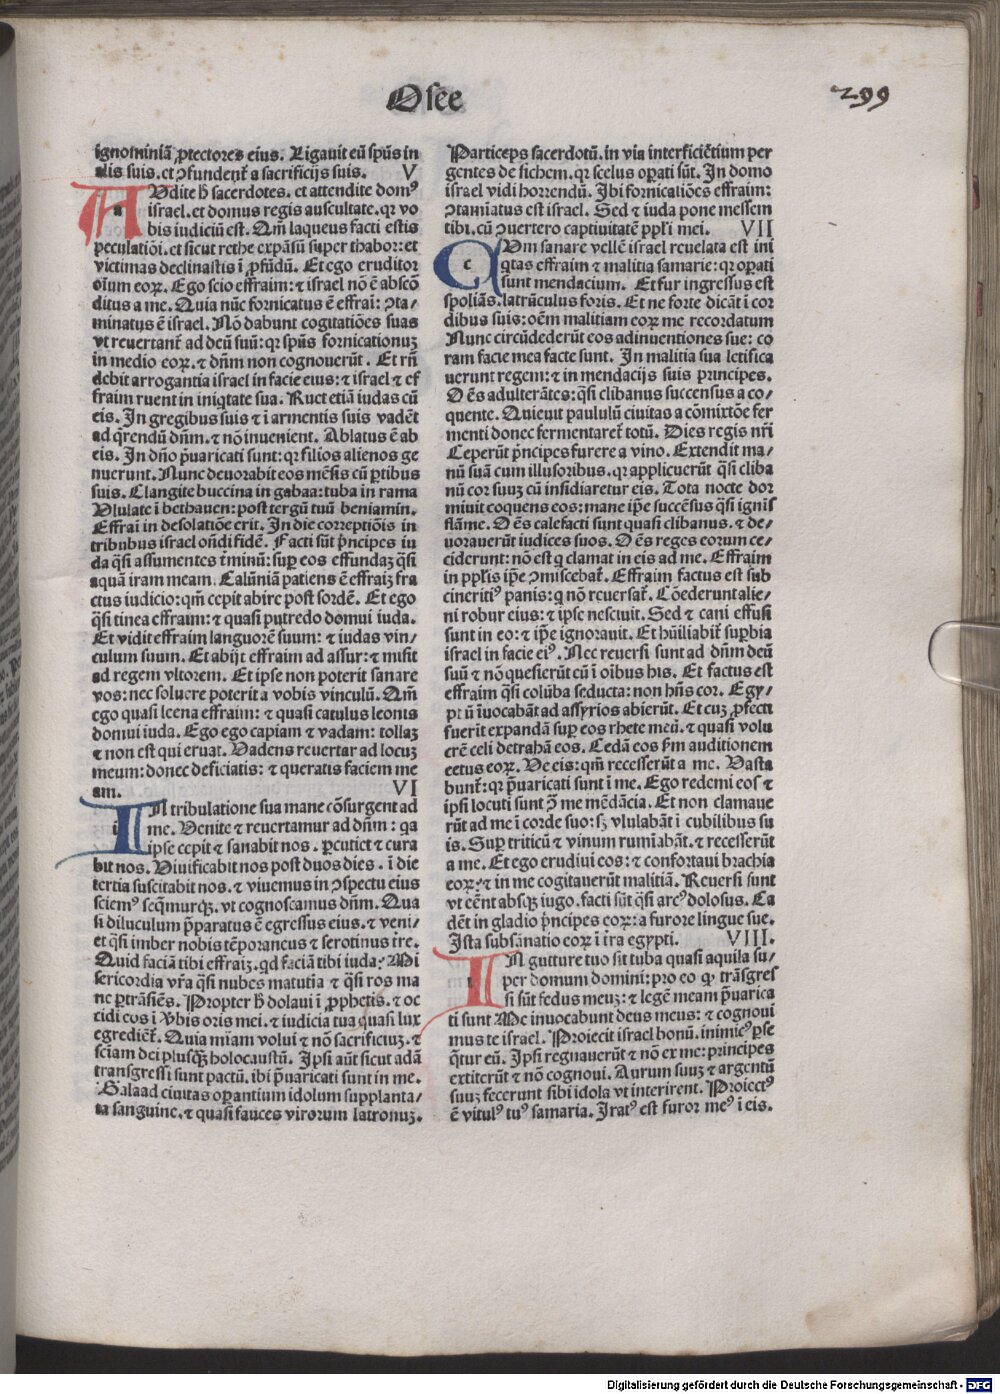 Osee
299
ignominiã ꝓtectores eius. Ligauit eũ spũs in
alis suis. et ↄfundent᷑ a sacrificijs suis. V
AVdite h̾ sacerdotes. et attendite domꝰ
israel. et domus regis auscultate. qꝛ vo
bis iudiciũ est. Qm̃ laqueus facti estis
speculatiõi. et sicut rethe expãsũ super thabor: et
victimas declinastis ĩ ꝓfũdũ. Et ego eruditor
oĩum eoꝝ. Ego scio effraim: ⁊ israel nõ ẽ abscõ
ditus a me. Quia nũc fornicatus ẽ effrai: ↄta⸗
minatus ẽ israel. Nõ dabunt cogitatiões suas
vt reuertant᷑ ad deũ suũ: qꝛ spũs fornicationuꝫ
in medio eoꝝ. ⁊ dñm non cognouerũt. Et rñ
debit arrogantia israel in facie eius: ⁊ israel ⁊ ef
fraim ruent in iniq̃tate sua. Ruet etiã iudas cũ
eis. In gregibus suis ⁊ ĩ armentis suis vadẽt
ad q̃rendũ dñm. ⁊ nõ inuenient. Ablatus ẽ ab
eis. In dño p̃uaricati sunt: qꝛ filios alienos ge
nuerunt. Nunc deuorabit eos mẽsis cũ ꝑtibus
suis. Clangite buccina in gabaa: tuba in rama
Vlulate ĩ bethauen: post tergũ tuũ beniamin.
Effrai in desolatiõe erit. In die correptiõis in
tribubus israel oñdi fidẽ. Facti sũt p̃ncipes iu
da q̃si assumentes t̃minũ: suꝑ eos effundaꝫ q̃si
aquã iram meam. Calũniã patiens ẽ effraiꝫ fra
ctus iudicio: qm̃ cepit abire post sordẽ. Et ego
q̃si tinea effraim: ⁊ quasi putredo domui iuda.
Et vidit effraim languorẽ suum: ⁊ iudas vin⸗
culum suum. Et abijt effraim ad assur: ⁊ misit
ad regem vltorem. Et ipse non poterit sanare
vos: nec soluere poterit a vobis vinculũ. Qm̃
ego quasi leena effraim: ⁊ quasi catulus leonis
domui iuda. Ego ego capiam ⁊ vadam: tollaꝫ
⁊ non est qui eruat. Vadens reuertar ad locuꝫ
meum: donec deficiatis: ⁊ queratis faciem me
am. VI
IN tribulatione sua mane cõsurgent ad
me. Venite ⁊ reuertamur ad dñm: qa
ipse cepit ⁊ sanabit nos. ꝑcutiet ⁊ cura
bit nos. Viuificabit nos post duos dies. i die
tertia suscitabit nos. ⁊ viuemus in ↄspectu eius
sciemꝰ seq̃murqꝫ. vt cognoscamus dñm. Qua
si diluculum p̃paratus ẽ egressus eius. ⁊ veni⸗
et q̃si imber nobis tẽporaneus ⁊ serotinus tr̃e.
Quid faciã tibi effraiꝫ. qd faciã tibi iuda? Mi
sericordia vr̃a q̃si nubes matutia ⁊ q̃si ros ma
ne ꝑtrãsiẽs. Propter h̾ dolaui ĩ ꝓphetis. ⁊ oc
cidi eos ĩ v̾bis oris mei. ⁊ iudicia tua quasi lux
egredient᷑. Quia mĩam volui ⁊ nõ sacrificiuꝫ. ⁊
sciam dei plusqꝫ̃ holocaustũ. Ipsi aũt sicut adã
transgressi sunt pactũ. ibi p̃uaricati sunt in me.
Galaad ciuitas oꝑantium idolum supplanta⸗
ta sanguine. ⁊ quasi fauces virorum latronuꝫ.
Particeps sacerdotũ. in via interficiẽtium per
gentes de sichem. qꝛ scelus oꝑati sũt. In domo
israel vidi horrendũ. Ibi fornicatiões effraim:
ↄtaminatus est israel. Sed ⁊ iuda pone messem
tibi. cũ ↄuertero captiuitatẽ ppl̃i mei. VII
CVm sanare vellẽ israel reuelata est ini
q̃tas effraim ⁊ malitia samarie: qꝛ oꝑati
sunt mendacium. Et fur ingressus est
spoliãs. latrũculus foris. Et ne forte dicãt ĩ cor
dibus suis: oẽm malitiam eoꝝ me recordatum
Nunc circũdederũt eos adinuentiones sue: co
ram facie mea facte sunt. In malitia sua letifica
uerunt regem: ⁊ in mendacijs suis principes.
Oẽs adulterãtes: q̃si clibanus succensus a co⸗
quente. Quieuit paululũ ciuitas a cõmixtõe fer
menti donec fermentaret᷑ totũ. Dies regis nr̃i
Ceperũt p̃ncipes furere a vino. Extendit ma⸗
nũ suã cum illusoribus. qꝛ applicuerũt q̃si cliba
nũ cor suuꝫ cũ insidiaretur eis. Tota nocte dor
miuit coquens eos: mane ip̃e succẽsus q̃si ignis
flãme. Oẽs calefacti sunt quasi clibanus. ⁊ de⸗
uorauerũt iudices suos. Oẽs reges eorum ce⸗
ciderunt: nõ est q̇ clamat in eis ad me. Effraim
in ppl̃is ip̃e ↄmiscebat᷑. Effraim factus est sub
cineritiꝰ panis: q̇ nõ reuersat᷑. Cõederunt alie⸗
ni robur eius: ⁊ ipse nesciuit. Sed ⁊ cani effusi
sunt in eo: ⁊ ip̃e ignorauit. Et hũiliabit᷑ suꝑbia
israel in facie eiꝰ. Nec reuersi sunt ad dñm deũ
suũ ⁊ nõ quesierũt eũ ĩ oĩbus his. Et factus est
effraim q̃si colũba seducta: non hñs cor. Egy⸗
ptũ ĩuocabãt ad assyrios abierũt. Et cuꝫ ꝓfecti
fuerit expandã suꝑ eos rhete meũ. ⁊ quasi volu
crẽ celi detrahã eos. Cedã eos ẜm auditionem
cetus eoꝝ. Ve eis: qm̃ recesserũt a me. Vasta
bunt᷑: qꝛ p̃uaricati sunt ĩ me. Ego redemi eos ⁊
ipsi locuti sunt ↄ̃ me mẽdãcia. Et non clamaue
rũt ad me ĩ corde suo: sꝫ vlulabãt ĩ cubilibus su
is. Suꝑ triticũ ⁊ vinum rumiabãt. ⁊ recesserũt
a me. Et ego erudiui eos: ⁊ confortaui brachia
eoꝝ: ⁊ in me cogitauerũt malitiã. Reuersi sunt
vt eẽnt absqꝫ iugo. facti sũt q̃si arcꝰ dolosus. Ca
dẽt in gladio p̃ncipes eoꝝ: a furore lingue sue.
Ista subsãnatio eoꝝ ĩ tr̃a egypti. VIII.
IN gutture tuo sit tuba quasi aquila su⸗
per domum domini: pro eo qꝙ trãsgres
si sũt fedus meuꝫ: ⁊ legẽ meam p̃uarica
ti sunt Me inuocabunt deus meus: ⁊ cognoui
mus te israel. Proiecit israel bonũ. inimicꝰ ꝑse
q̃tur eũ. Ipsi regnauerũt ⁊ nõ ex me: principes
extiterũt ⁊ nõ cognoui. Aurum suuꝫ ⁊ argentũ
suuꝫ fecerunt sibi idola vt interirent. Proiectꝰ
ẽ vitulꝰ tuꝰ samaria. Iratꝰ est furor meꝰ ĩ eis.
Digitalisierung gefördert durch die Deutsche Forschungsgemeinschaft - DFG